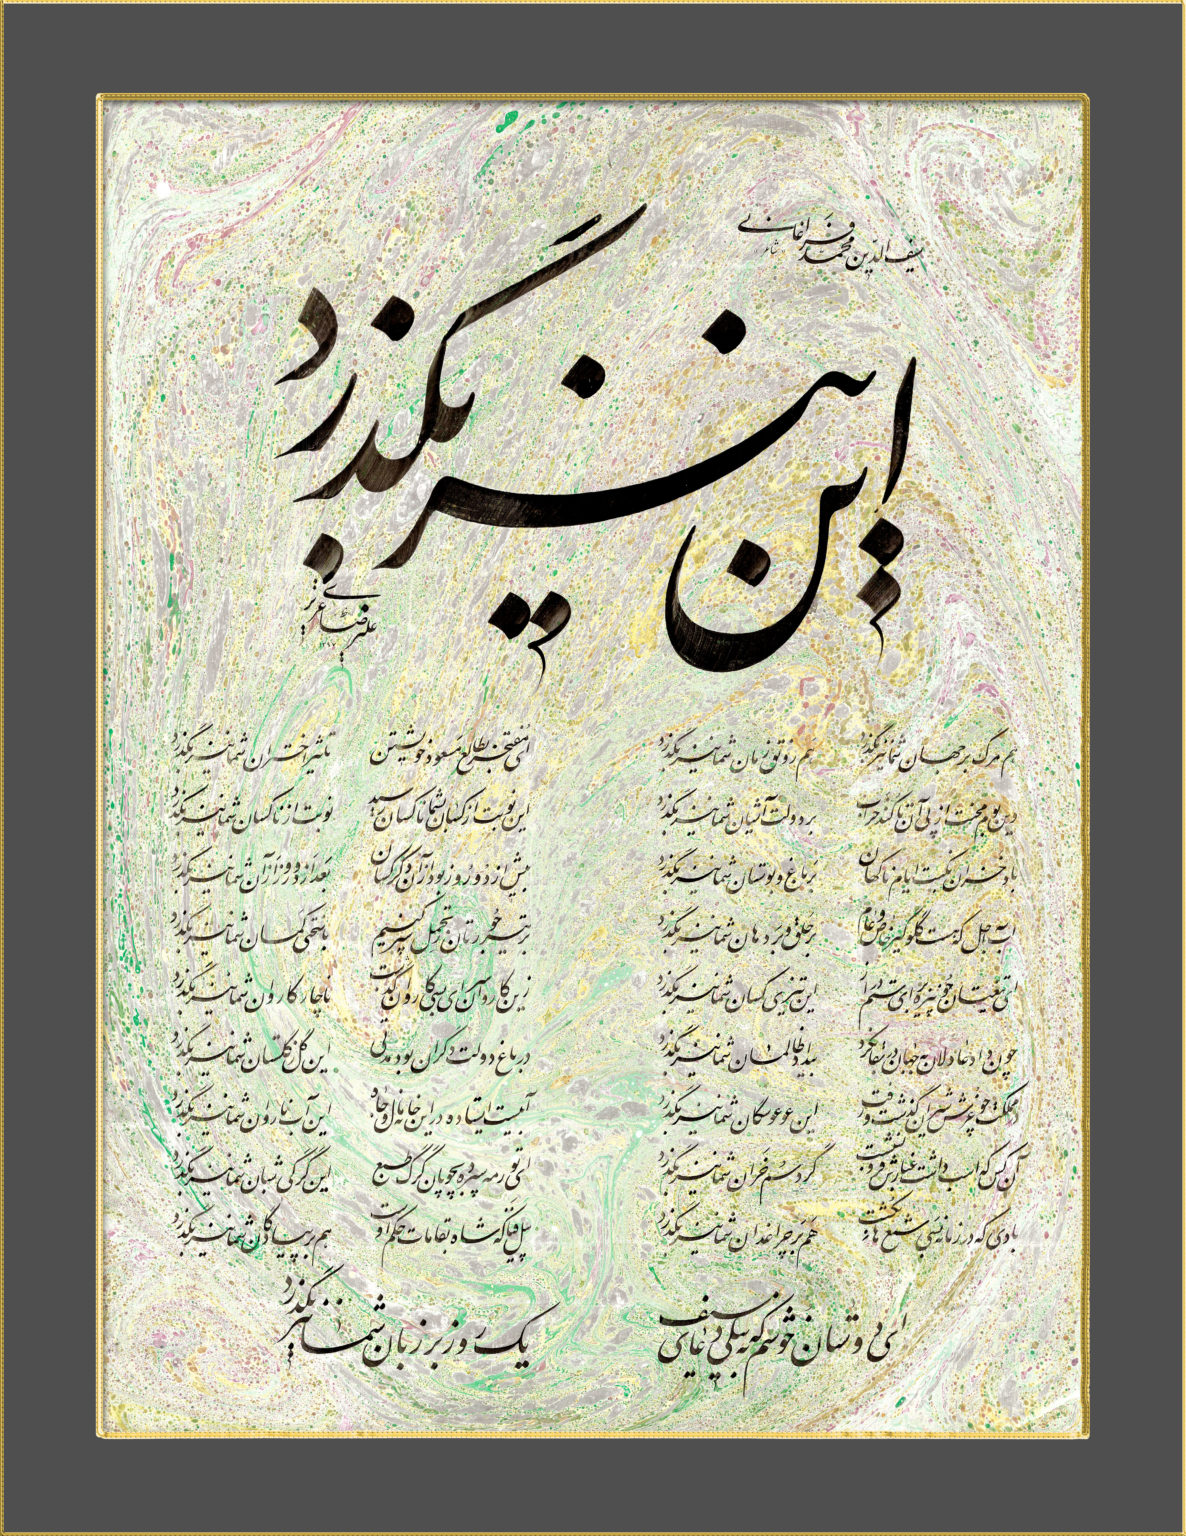 سیف الدین محمد فرغانی
شاعر
این نیز بگذرد
خط
علیرضا عزیزی
هم مرگ بر جهان شما نیز بگذرد هم رونق زمان شما نیز بگذرد
وین بوم محنت از پی آن تا کند خراب بر دولت آشیان شما نیز بگذرد
باد خزان نکبت ایام ناگهان بر باغ و بوستان شما نیز بگذرد
آب اجل که هست گلوگیر خاص و عام بر حلق و بر دهان شما نیز بگذرد
ای تیغتان چو نیزه برای ستم دراز این تیزی سنان شما نیز بگذرد
چون داد عادلان به جهان در بقا نکرد بیداد ظالمان شما نیز بگذرد
در مملکت چو غرش شیران گذشت و رفت این عوعو سگان شما نیز بگذرد
آن کس که اسب داشت غبارش فرو نشست گرد سم خران شما نیز بگذرد
بادی که در زمانه بسی شمع ها بکشت هم بر چراغدان شما نیز بگذرد
ای مفتخر به طالع مسعود خویشتن تاثیر اختران شما نیز بگذرد
این نوبت از کسان به شما ناکسان رسید نوبت از ناکسان شما نیز بگذرد
بیش از دو روز بود از آن دگر کسان بعد از دو روز از آن شما نیز بگذرد
بر تیر جورتان ز تحمل سپر کنیم تا سختی کمان شما نیز بگذرد
زین کاروانسرای بسی کاروان گذشت ناچار کاروان شما نیز بگذرد
در باغ دولت دگران بود مدتی این گل ز گلستان شما نیز بگذرد
آبیست ایستاده در این خانه مال و جاه این آب ناروان شما نیز بگذرد
ای تو رمه سپرده به چوپان گرگ طبع این گرگی شبان شما نیز بگذرد
پیل فنا که شاه بقا مات حکم اوست هم بر پیادگان شما نیز بگذرد
ای دوستان خوهم که به نیکی دعای سیف یک روز بر زبان شما نیز بگذرد